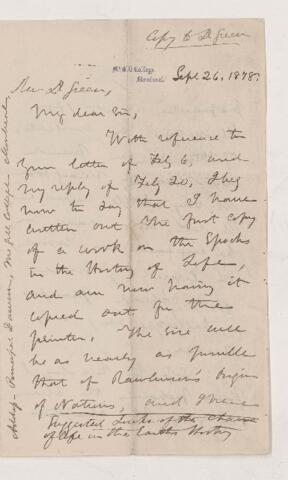 Copy to Dr Green
McGill College,
Montreal.
Sept 26, 1878.
Rev Dr Green,
My dear Sir,
With reference to
your letter of Feby 6, and
my reply of Feby 20, I beg
now to say that I have
written out the first copy
of a work on the Epochs
in the History of Life,
and am now having it
copied out for the
printer. The size will
be as nearly as possible
that of Rawlinson's Origin
of Nations, and I have
Suggested Links of the Chain
of Life in the Earths History
Principal Dawson, McGill College Montreal